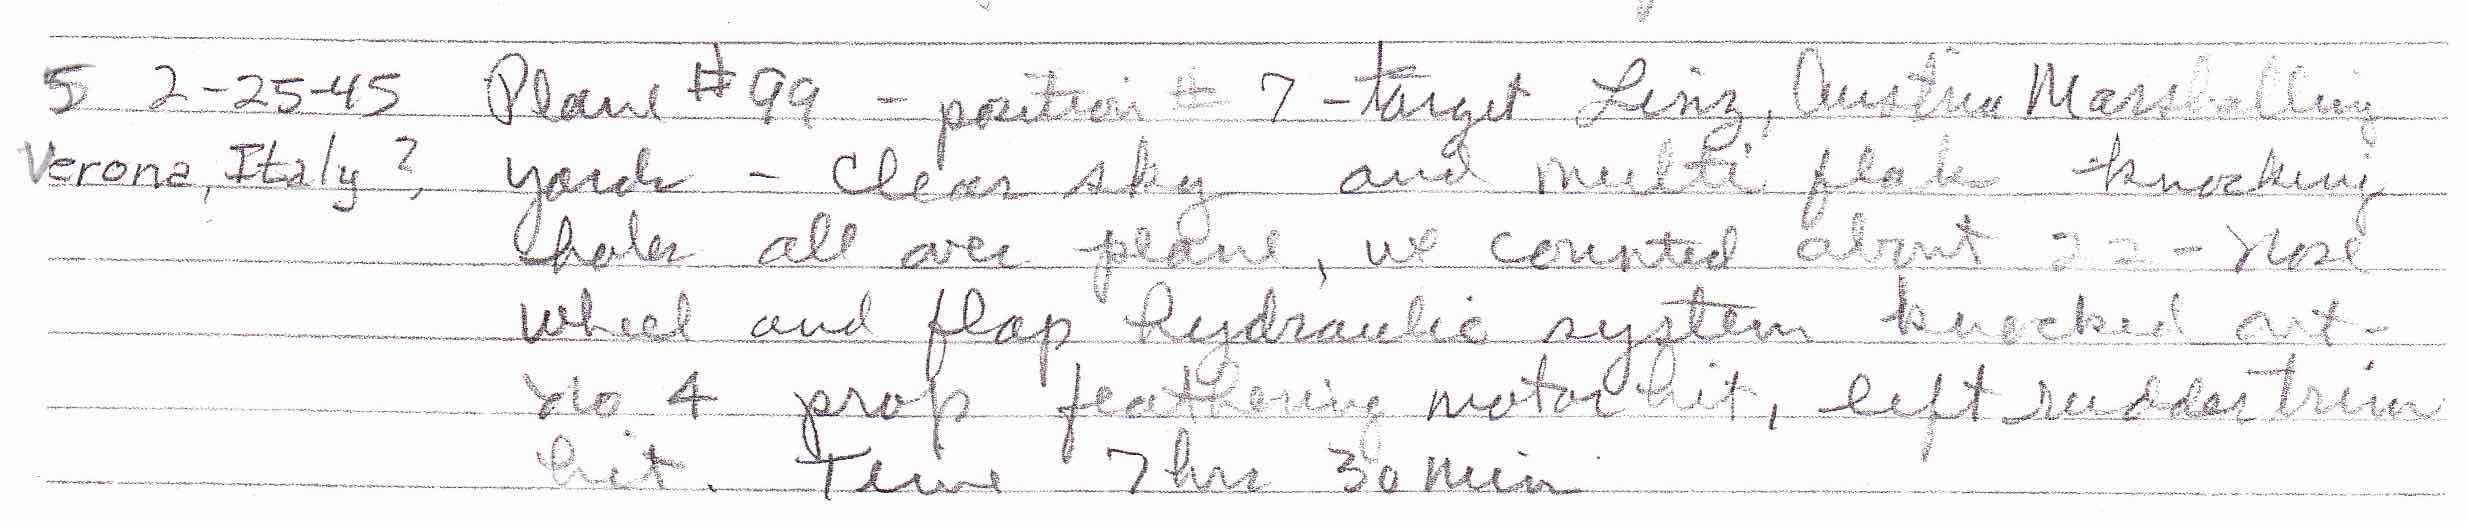 5 2-25-45 Plane #99 - position # 7 - target Linz, Austria Marshalling
Verona, Italy?, yards - Clear sky and multi flak knocking
holes all over plane, we counted about 22 - Nose
wheel and flap hydraulic system knocked out -
No 4 prop feathering motor hit, left rudder trim
hit. Time 7 hrs 30 min